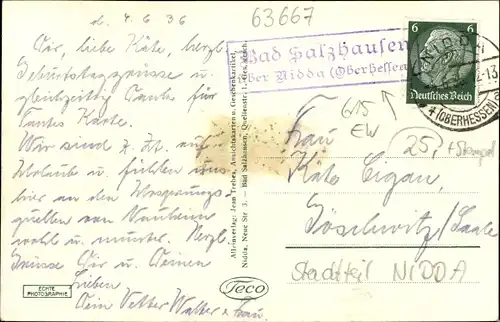 d. 4.6.36
Dir, liebe Käte, herzl.
Geburtstagsgrüsse u.
gleichzeitig Dank für
Wir sind z. Zt. auf
Urlaub u. fühlen uns
hier an den
quellen von Nauheim
wohl u. munter. Herzl.
Grüsse Dir u. Deinen
Lieben
Dein Vetter Walter u. Frau.
ECHTE
PHOTOGRAPHIE
Alleinverlag: Jean Trebes, Ansichtskarten u. Geschenkartikel,
Nidda, Neue Str. 3. — Bad Salzhausen, Quellenstr.
Teco
63667
Bad Salzhausen
über Nidda (Oberhessen)
6 6
Deutsches Reich
NIDDA
(OBERHESSEN)
615
EW
25,- + Stempel
Frau
Käte
Göschwitz/Saale
Stadtteil NIDDA